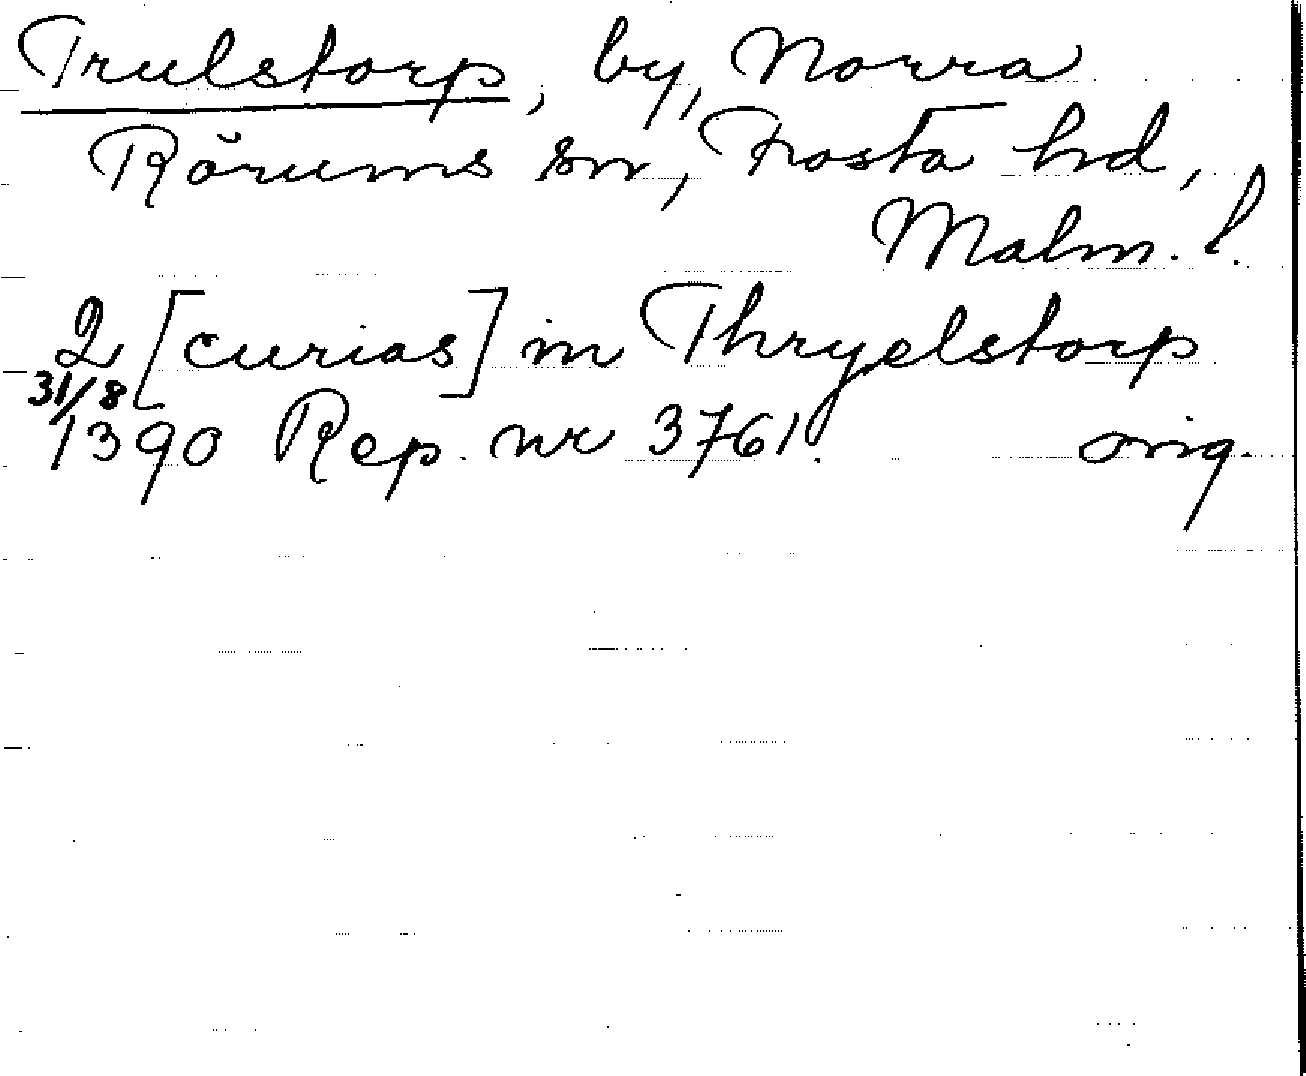 Trulstorp, by, Norra
Rörums sn, Frosta hd,
Malm. l.
2 [curias] in Thryelstorp
31/8
1390 Rep. nr 3761. orig.